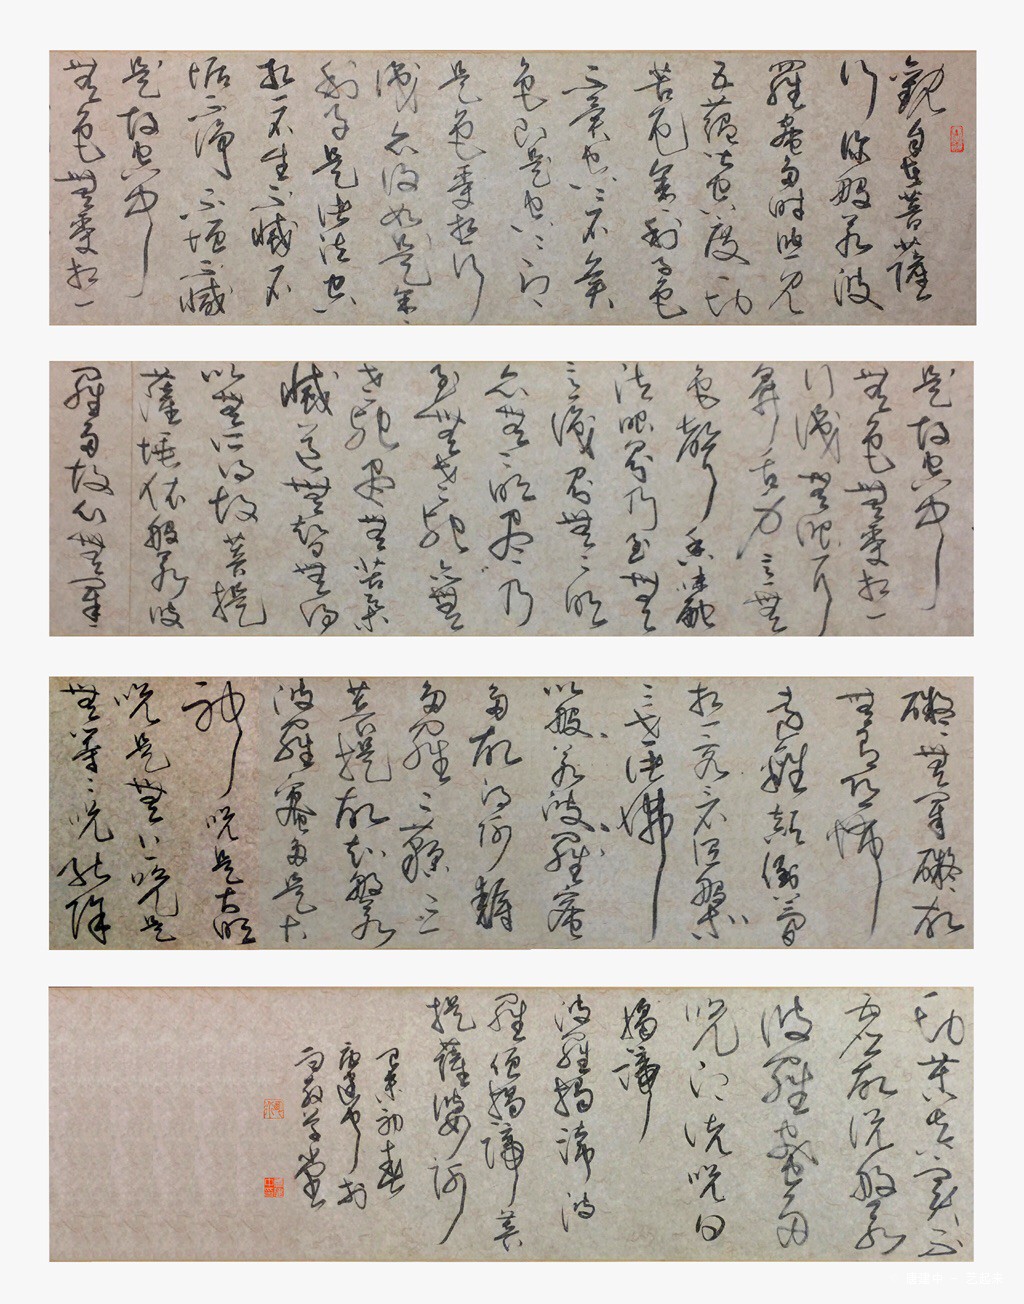 觀自在菩薩
行深般若波
羅蜜多時照見
五蘊皆空度一切
苦厄舍利子色
不異空々不異
色即是空々即
是色受想行
識亦復如是舍
利子是諸法空
相不生不滅不
垢不淨不增不減
是故空中
無色無受想
是故空中
無色無受想
行識無眼耳
鼻舌身意無
色聲香味觸
法眼界乃至無
意識界無々明
亦無々明盡乃
至無老死亦無
老死盡無苦集
滅道無智無得
以無所得故菩提
薩埵依般若波
羅多故心無罣
礙々無罣礙故
無有恐怖
遠離顛倒夢
想究竟涅槃
三世諸佛
以般若波羅蜜
多故得阿耨
多羅三藐三
菩提故知般若
波羅蜜多是大
神咒是大明
咒是無上咒是
無等々咒能除
一切苦真實不
虛故說般若
波羅蜜多
咒即說咒曰
揭諦
波羅揭諦波
羅僧揭諦菩
提薩婆訶
己亥初春
學堂